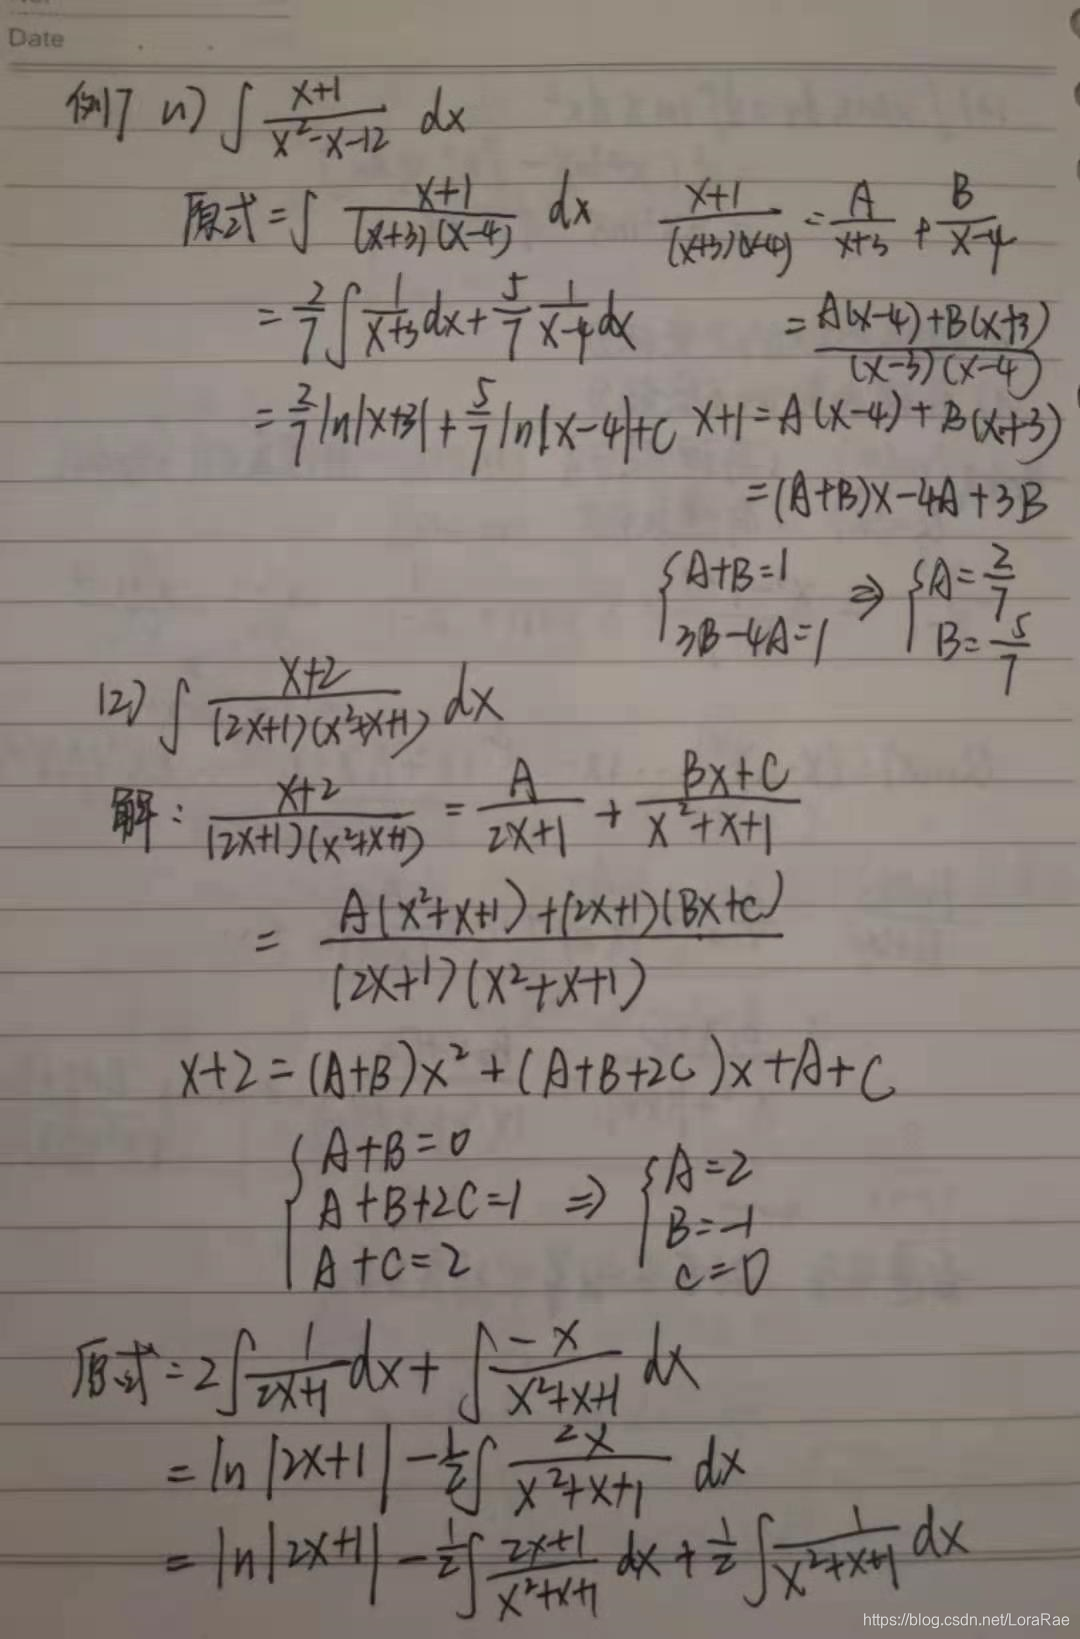 Date
例7 (1) ∫ (x+1)/(x²-x-12) dx
原式 = ∫ (x+1)/((x+3)(x-4)) dx (x+1)/((x+3)(x-4)) = A/(x+3) + B/(x-4)
= 2/7 ∫ 1/(x+3) dx + 5/7 1/(x-4) dx = (A(x-4)+B(x+3))/((x-3)(x-4))
= 2/7 ln|x+3| + 5/7 ln|x-4| + C x+1 = A(x-4) + B(x+3)
= (A+B)x-4A+3B
{A+B=1 3B-4A=1 ⇒ {A=2/7 B=5/7
(2) ∫ (x+2)/((2x+1)(x²+x+1)) dx
解: (x+2)/((2x+1)(x²+x+1)) = A/(2x+1) + (Bx+C)/(x²+x+1)
= (A(x²+x+1)+(2x+1)(Bx+C))/((2x+1)(x²+x+1))
x+2 = (A+B)x² + (A+B+2C)x + A + C
{A+B=0 A+B+2C=1 A+C=2 ⇒ {A=2 B=-1 C=0
原式 = 2∫ 1/(2x+1) dx + ∫ -x/(x²+x+1) dx
= ln|2x+1| - 1/2 ∫ 2x/(x²+x+1) dx
= ln|2x+1| - 1/2 ∫ (2x+1)/(x²+x+1) dx + 1/2 ∫ 1/(x²+x+1) dx
https://blog.csdn.net/LoraRae